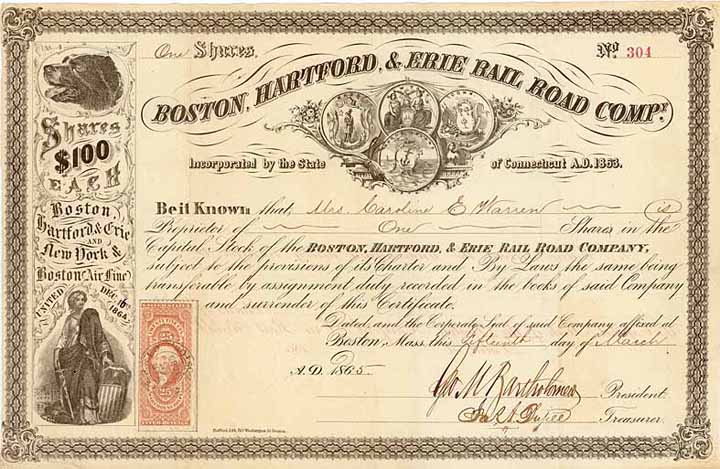 One Shares. No. 304
BOSTON, HARTFORD, & ERIE RAIL ROAD COMPY.
Incorporated by the State of Connecticut A.D. 1863.
Shares
$100
EACH
Boston,
Hartford & Erie
AND
New York &
Boston Air Line
UNITED DEC. 10th 1864
Be it Known that, Mrs. Caroline E Warren is
Proprietor of One Shares in the
Capital Stock of the BOSTON, HARTFORD, & ERIE RAIL ROAD COMPANY,
subject to the provisions of its Charter and By Laws the same being
transferable by assignment duly recorded in the books of said Company
and surrender of this Certificate.
Dated and the Corporate Seal of said Company affixed at
Boston, Mass. this fifteenth day of March
A.D. 1865.
Geo M Bartholomew President.
Treasurer.
25 25